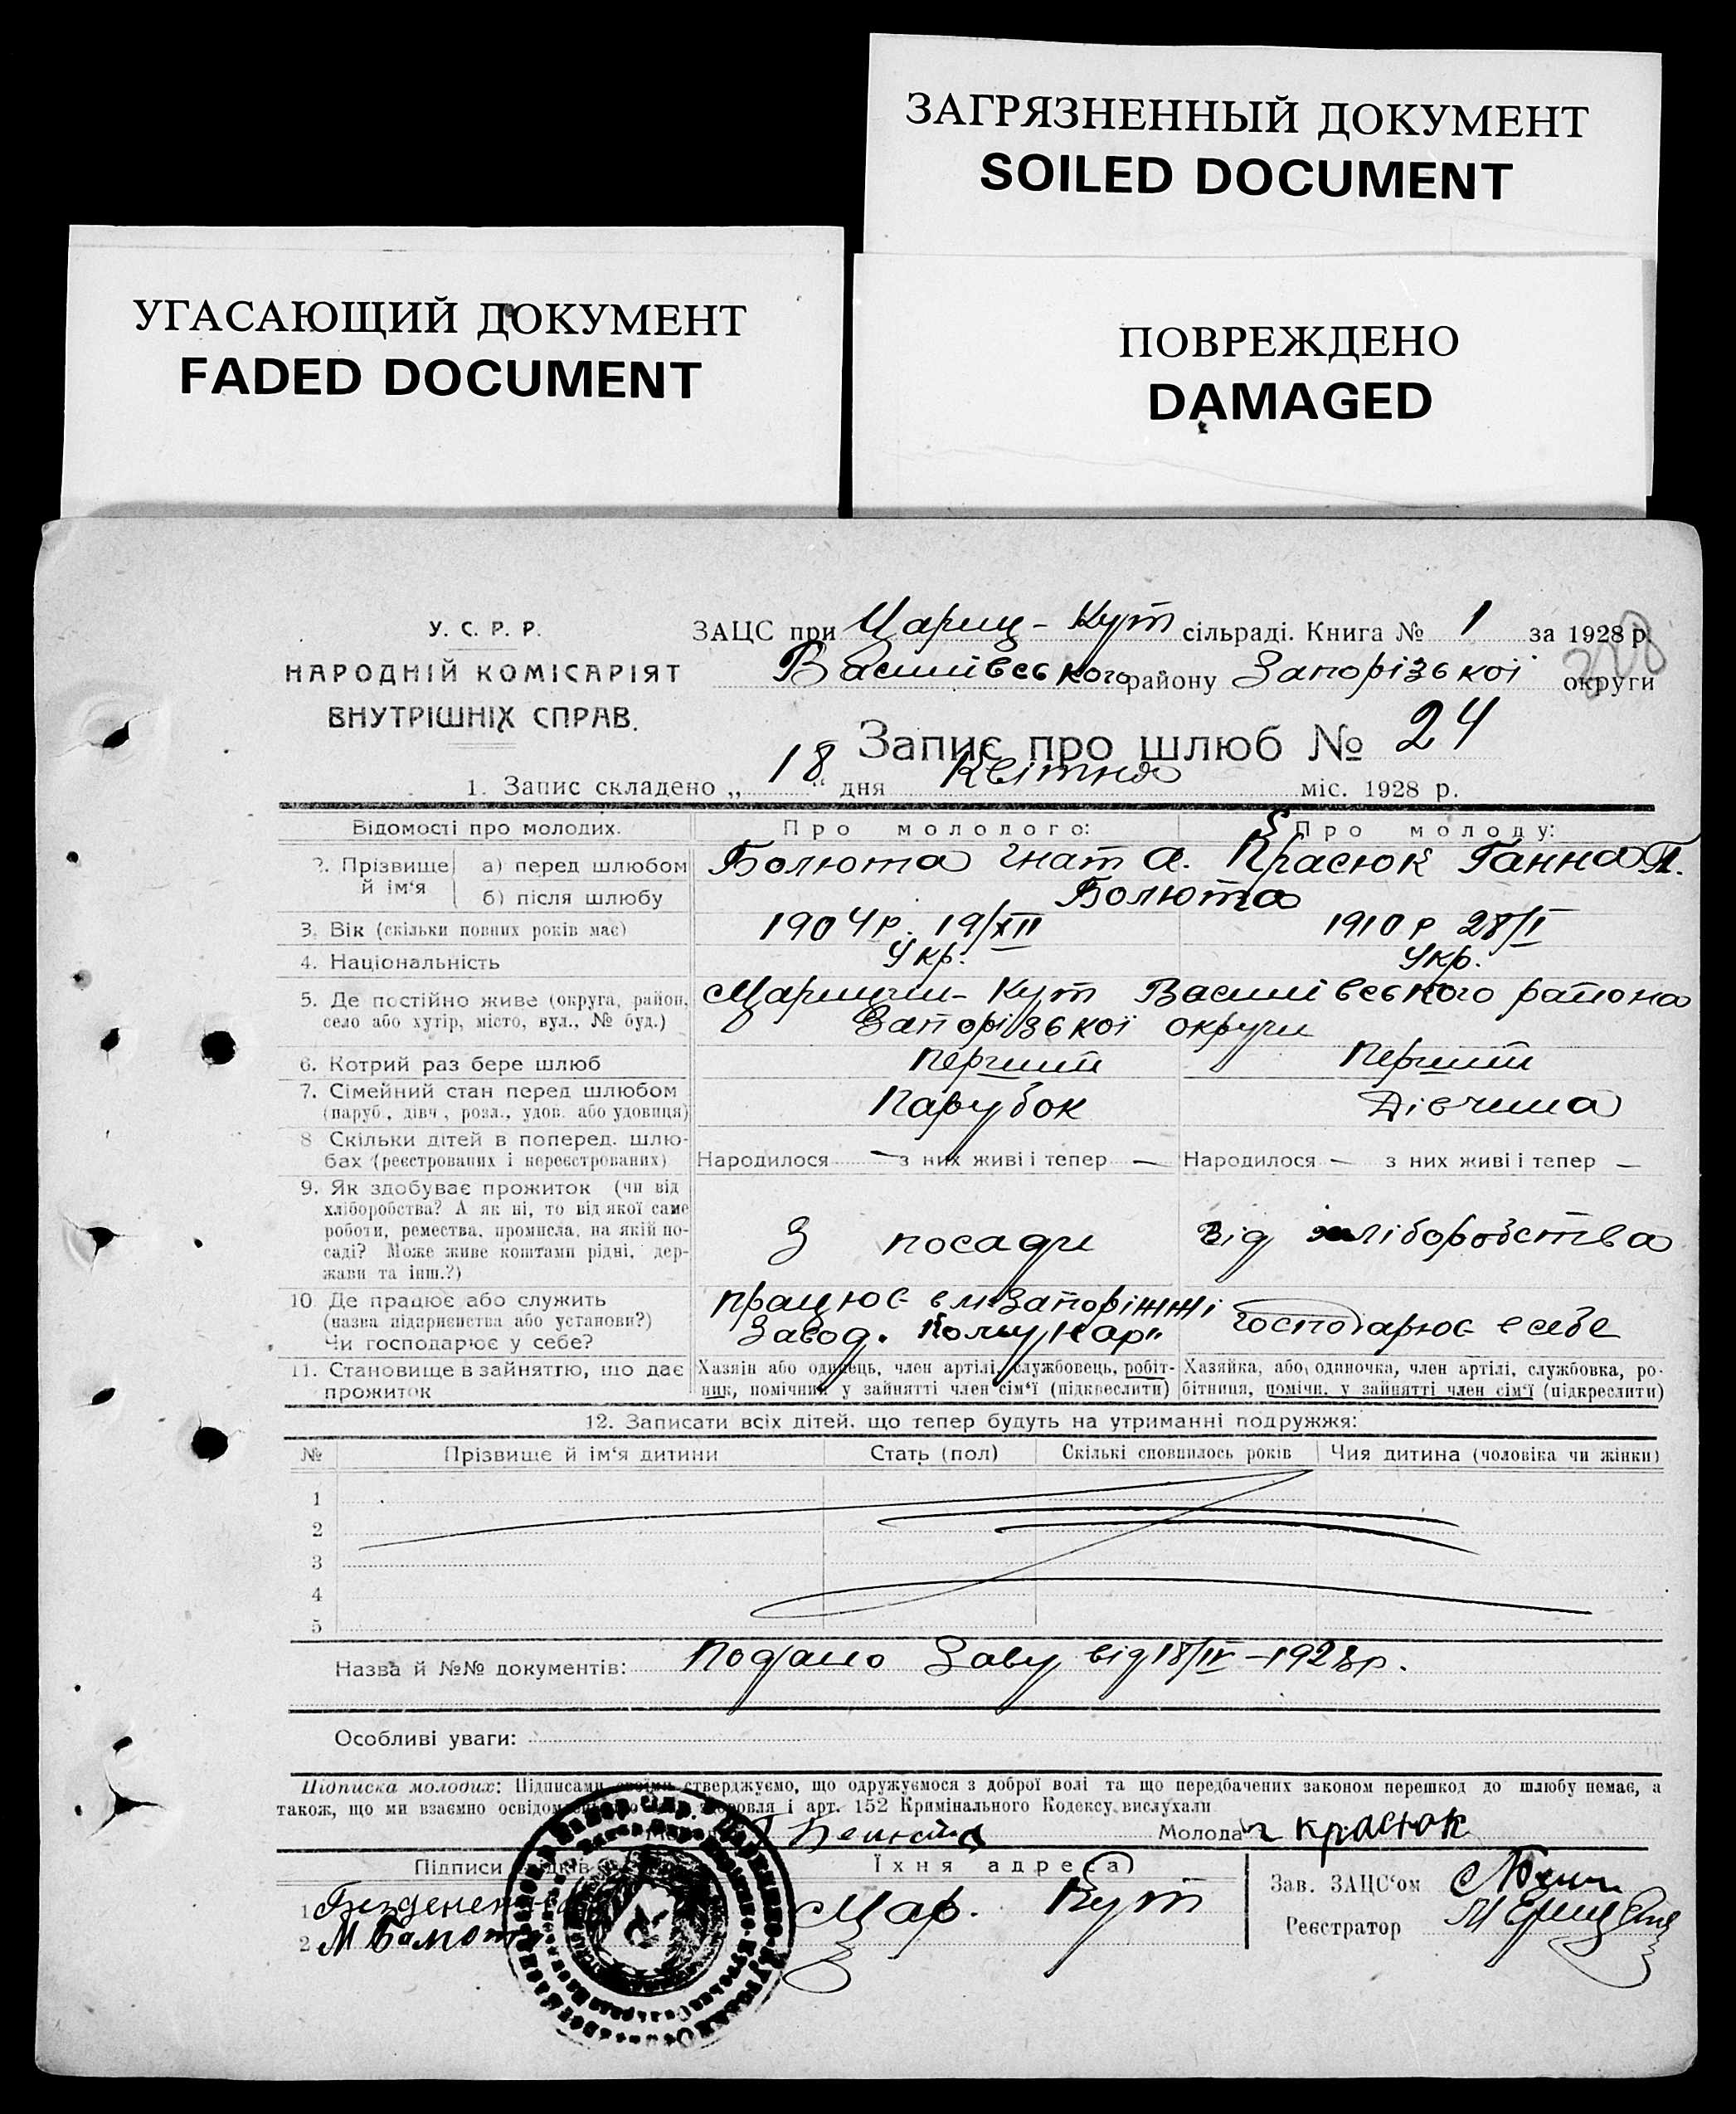 ЗАГРЯЗНЕННЫЙ ДОКУМЕНТ
SOILED DOCUMENT
УГАСАЮЩИЙ ДОКУМЕНТ
FADED DOCUMENT
ПОВРЕЖДЕНО
DAMAGED
У. С. Р. Р.
НАРОДНІЙ КОМІСАРІЯТ
ВНУТРІШНІХ СПРАВ.
ЗАЦС при Цариц-Кут сільраді. Книга № 1 за 1928 р.
Василівського району Запорізької округи
Запис про шлюб № 24
1. Запис складено „18“ дня Квітня міс. 1928 р.
Відомості про молодих. Про молодого: Про молоду:
2. Прізвище й ім‘я а) перед шлюбом Болюта Гнат А. Красюк Ганна П.
б) після шлюбу Болюта
3. Вік (скільки повних років має) 1904р. 19/XII 1910 р 28/I
4. Національність Укр. Укр.
5. Де постійно живе (округа, район, село або хутір, місто, вул., № буд.) Царицин-Кут Василівського района
Запорізької округи
6. Котрий раз бере шлюб Перший Перший
7. Сімейний стан перед шлюбом Парубок Дівчина
(паруб., дівч., розл., удов. або удовиця)
8 Скільки дітей в поперед. шлю-
бах (реєстрованих і нереєстрованих) Народилося — з них живі і тепер — Народилося — з них живі і тепер —
9. Як здобуває прожиток (чи від
хліборобства? А як ні, то від якої саме
роботи, ремества, промисла, на якій по-
саді? Може живе коштами рідні, дер-
жави та інш.?)
З посади від хліборобства
10. Де працює або служить
(назва підприємства або установи?)
Чи господарює у себе?
працює в м. Запоріжжі
Завод. "Комунар"
господарює в себе
11. Становище в зайняттю, що дає
прожиток
Хазяїн або одинець, член артілі, службовець, робіт-
ник, помічник у зайнятті член сім‘ї (підкреслити)
Хазяйка, або одиночка, член артілі, службовка, ро-
бітниця, помічн. у зайнятті член сім‘ї (підкреслити)
12. Записати всіх дітей, що тепер будуть на утриманні подружжя:
№ Прізвище й ім‘я дитини Стать (пол) Скількі сповнилось років Чия дитина (чоловіка чи жінки)
1
2
3
4
5
Назва й №№ документів: Подано Заву від 18/IV-1928р.
Особливі уваги:
Підписка молодих: Підписами своїми стверджуємо, що одружуємося з доброї волі та що передбачених законом перешкод до шлюбу немає, а
також, що ми взаємно освідомлені про здоровля і арт. 152 Кримінального Кодексу вислухали
Молода г красюк
Підписи свідків Їхня адреса Зав. ЗАЦС‘ом
1 Цар. Кут
2 М
Реєстратор